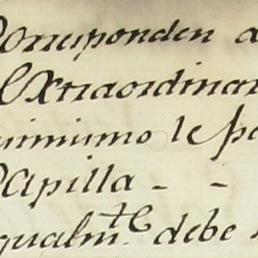 Corresponden a
Extraordinar
uinismo le pa
Capilla - -
qualm.te debe